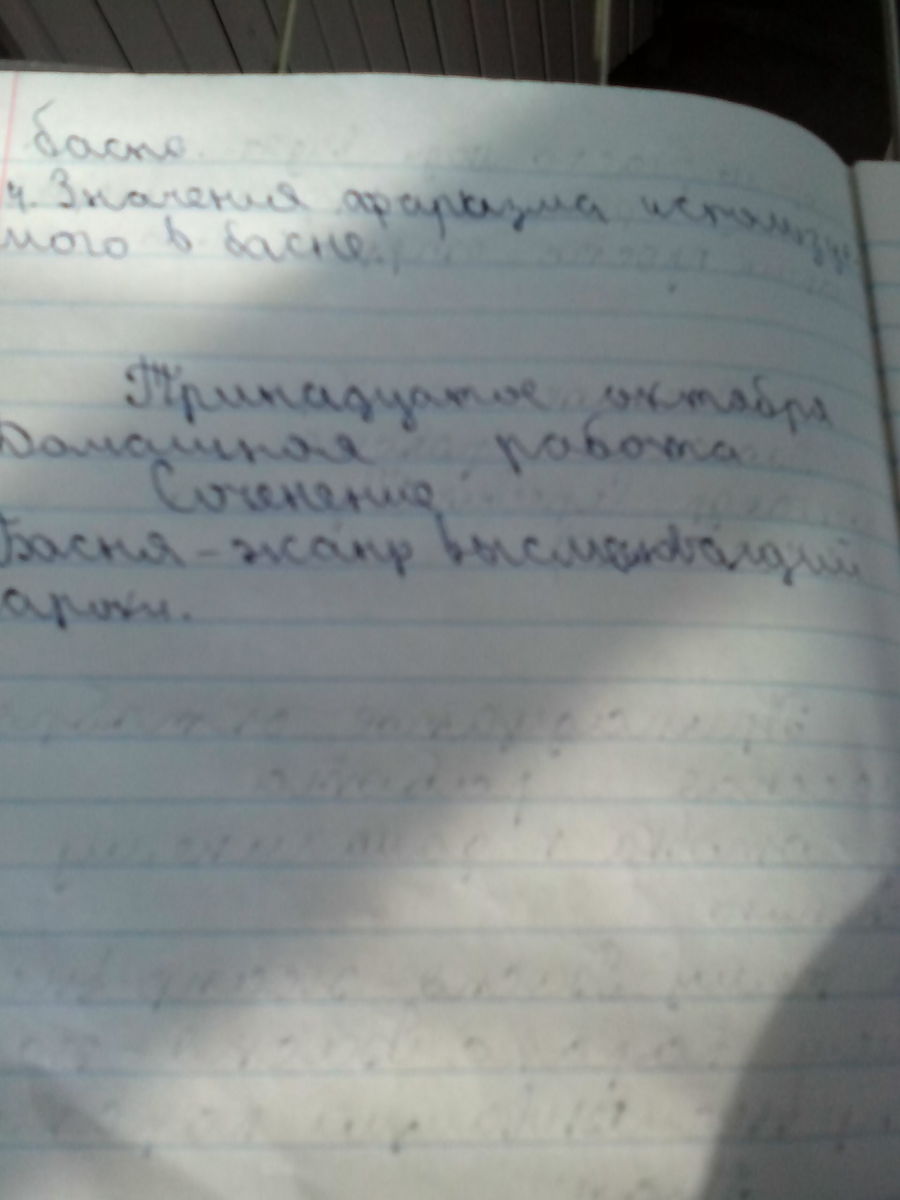 басне.
4. Значения афаризма используе
мого в басне.
Тринадцатое октября
Домашная работа
Соченение
Басня – жанр высмеивающий
ароки.